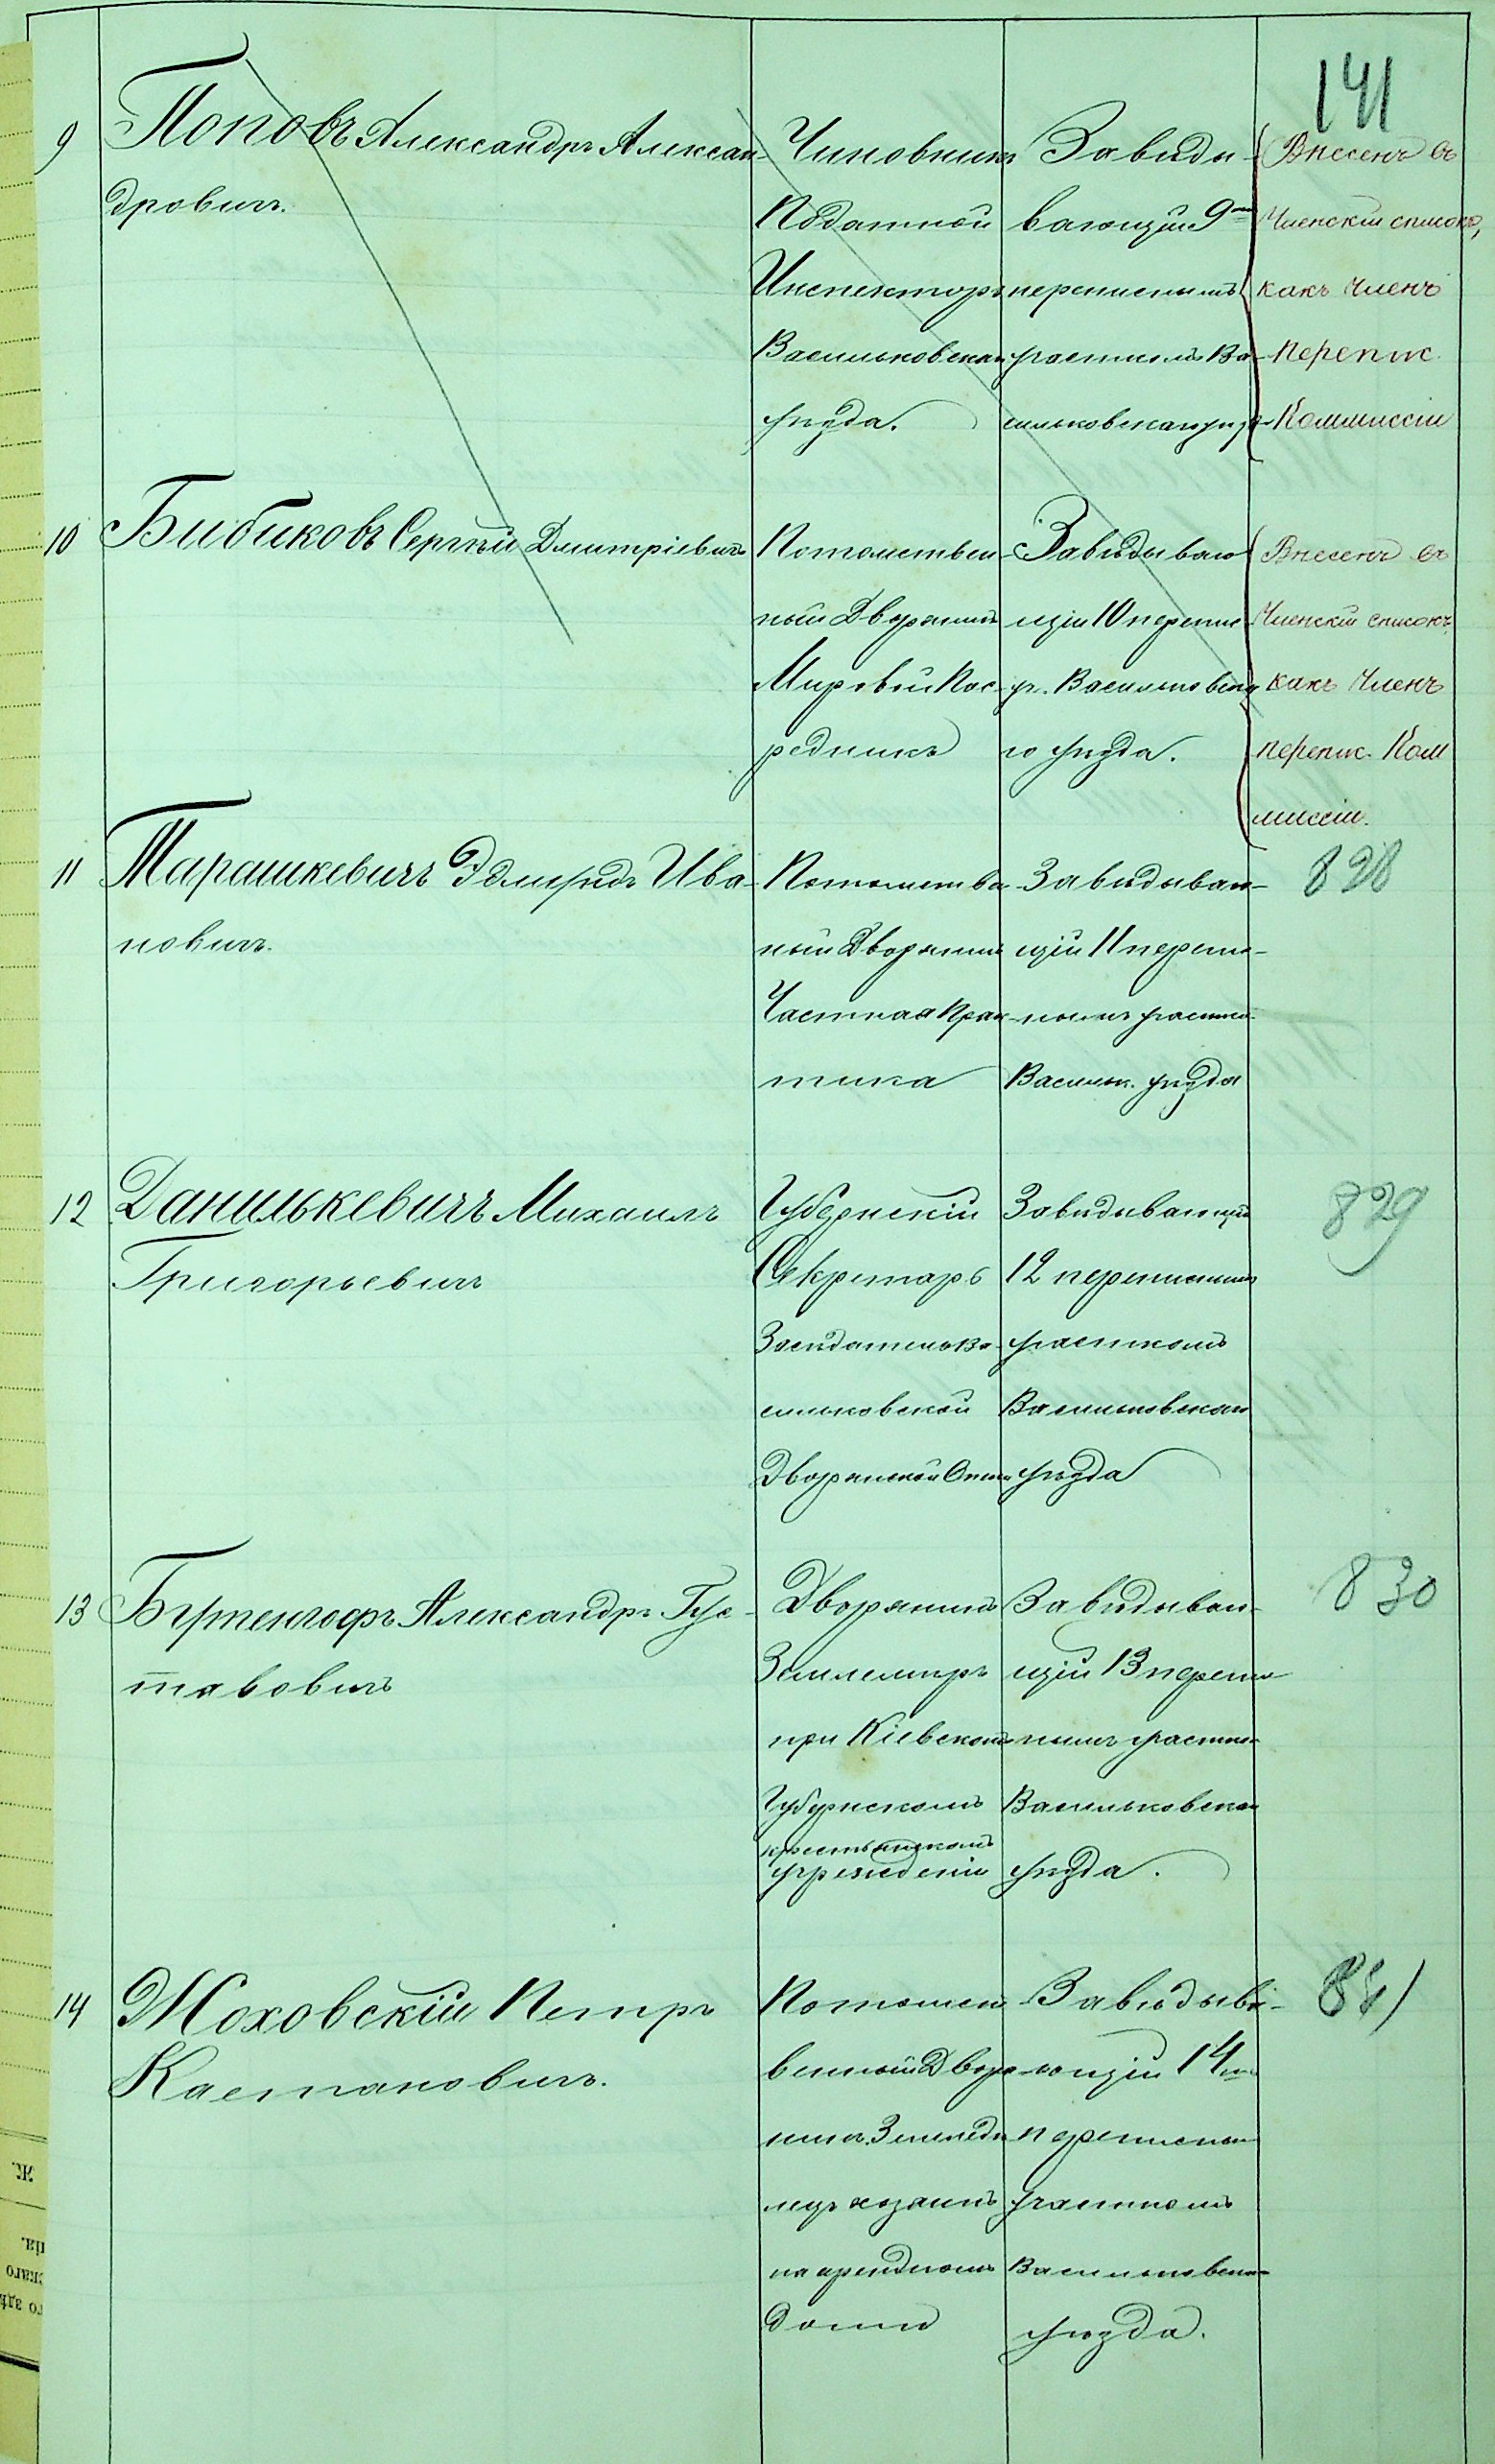 141
9
Поповъ Александръ Алексан-
дровичъ.
Чиновникъ
Податной
Инспекторъ
Васильковскаго
уѣзда.
Завѣды-
вающій 9мъ
переписнымъ
участкомъ Ва-
сильковскаго уѣзда
Внесенъ въ
Членскій списокъ,
какъ членъ
перепис.
Коммиссіи
10
Бибиковъ Сергѣй Дмитріевичъ
Потомствен-
ный Дворянинъ
Мировой Пос-
редникъ
Завѣдываю
щій 10 перепис
уч. Васильковска
го уѣзда.
Внесенъ въ
Членскій списокъ,
какъ членъ
перепис. Ком
миссіи.
11
Тарашкевичъ Эдмундъ Ива-
новичъ.
Потомствен
ный Дворянинъ
Частная прак-
тика
Завѣдываю-
щій 11 перепис-
нымъ участко-
Васильк. уѣзда
828
12
Данилькевичъ Михаилъ
Григорьевичъ
Губернскій
Секретарь
Засѣдатель Ва-
сильковской
Дворянской Опеки
Завѣдывающій
12 переписнымъ
участкомъ
Васильковскаго
уѣзда
829
13
Александръ Гус-
тавовичъ
Дворянинъ
Землемѣръ
при Кіевскомъ
Губернскомъ
крестьянскомъ
учрежденіи
Завѣдываю-
щій 13 перепис
нымъ участко
Васильковскаго
уѣзда.
830
14
Жоховскій Петръ
Каетановичъ.
Потомст
венный Дворя
нинъ. Землевла
хозяинъ
Завѣдыва-
ющій 14мъ
переписнымъ
участкомъ
Васильковскаго
уѣзда.
831
Ж.